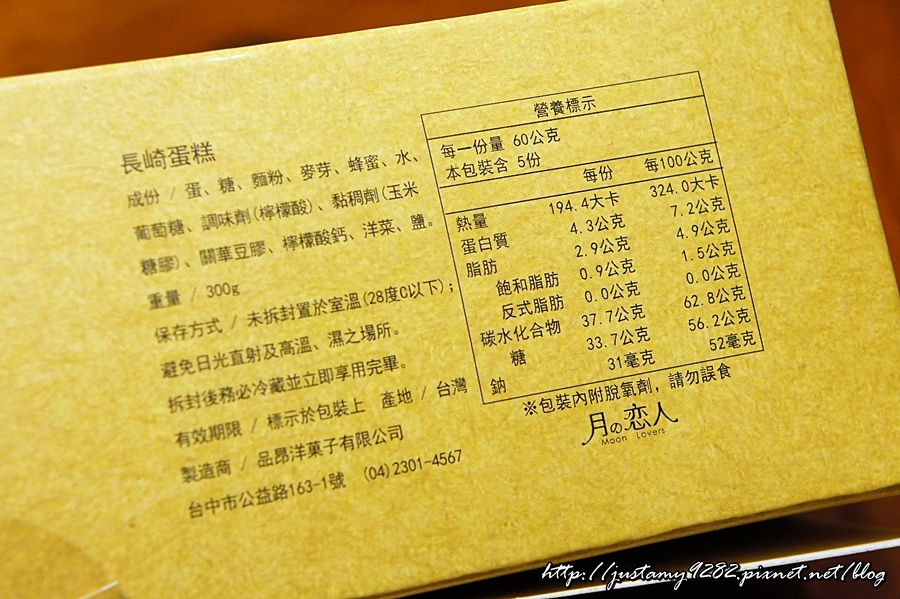 長崎蛋糕
成份 / 蛋、糖、麵粉、麥芽、蜂蜜、水、
葡萄糖、調味劑(檸檬酸)、黏稠劑(玉米
糖膠)、關華豆膠、檸檬酸鈣、洋菜、鹽。
重量 / 300g
保存方式 / 未拆封置於室溫(28度C以下);
避免日光直射及高溫、濕之場所。
拆封後務必冷藏並立即享用完畢。
有效期限 / 標示於包裝上 產地 / 台灣
製造商 / 品昂洋菓子有限公司
台中市公益路163-1號 (04)2301-4567
營養標示
每一份量 60公克
本包裝含 5份
每份 每100公克
熱量 194.4大卡 324.0大卡
蛋白質 4.3公克 7.2公克
脂肪 2.9公克 4.9公克
飽和脂肪 0.9公克 1.5公克
反式脂肪 0.0公克 0.0公克
碳水化合物 37.7公克 62.8公克
糖 33.7公克 56.2公克
鈉 31毫克 52毫克
※包裝內附脫氧劑，請勿誤食
月の恋人
Moon Lovers
http://justamy9282.pixnet.net/blog